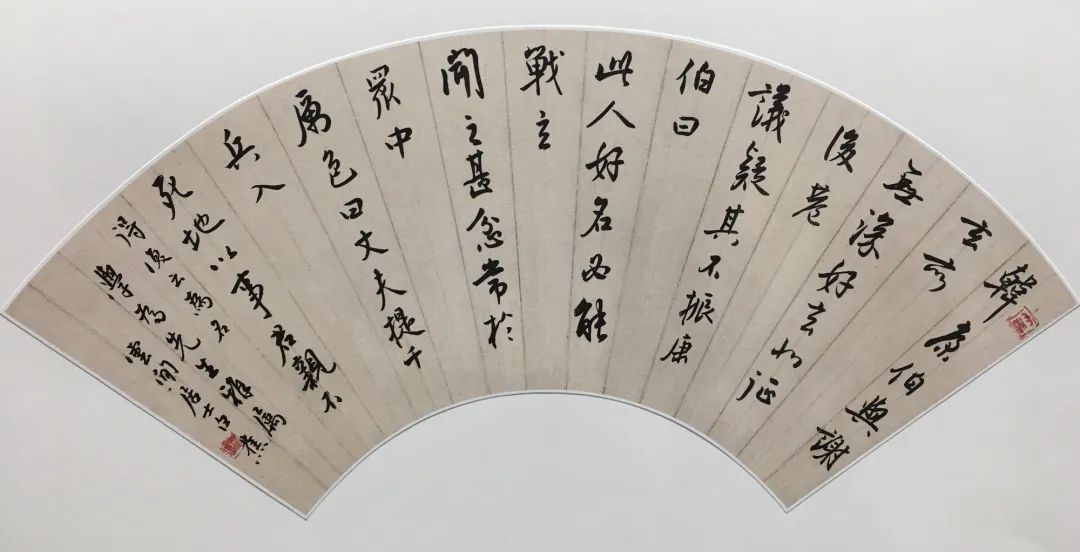 韓康伯與謝
玄亦
無深好玄北征
後巷
議疑其不振康
伯曰
此人好名必能
戰玄
聞之甚忿常於
眾中
厲色曰丈夫提千
兵入
死地以事君親不
得復云為名
學為先生雅屬
雲間居士白蕉